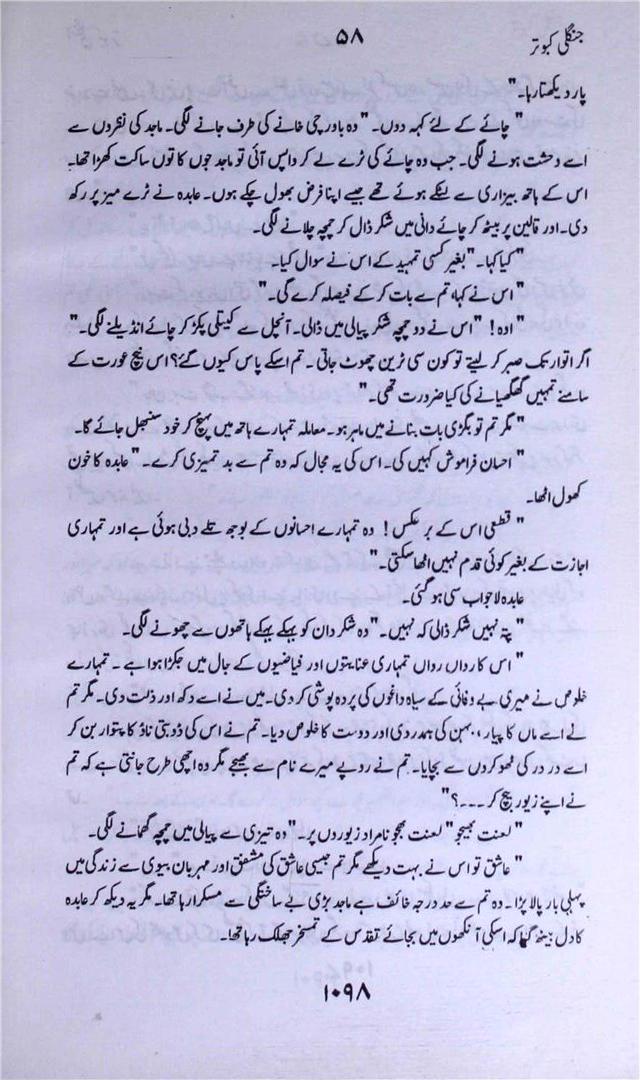 جنگلی کبوتر
۵۸
پار دیکھتا رہا۔"
" چائے کے لئے کہہ دوں۔" وہ باورچی خانے کی طرف جانے لگی۔ ماجد کی نظروں سے
اسے دحشت ہونے لگی۔ جب وہ چائے کی ٹرے لے کر داپس آئی تو ماجد جوں کا توں ساکت کھڑا تھا۔
اس کے ہاتھ بیزاری سے لٹکے ہوئے تھے جیسے اپنا فرض بھول چکے ہوں۔ عابدہ نے ٹرے میز پر رکھ
دی۔ اور قالین پر بیٹھ کر چائے دانی میں شکر ڈال کر چمچہ چلانے لگی۔
" کیا کہا۔" بغیر کسی تمہید کے اس نے سوال کیا۔
" اس نے کہا، تم سے بات کر کے فیصلہ کرے گی۔"
" اوہ! " اس نے دو چمچہ شکر پیالی میں ڈالی۔ آنچل سے کیتلی پکڑ کر چائے انڈیلنے لگی۔"
اگر اتوار تک صبر کر لیتے تو کون سی ٹرین چھوٹ جاتی۔ تم اسکے پاس کیوں گئے؟ اس نیچ عورت کے
سامنے تمہیں گھگھیانے کی کیا ضرورت تھی۔"
" مگر تم تو بگڑی بات بنانے میں ماہر ہو۔ معاملہ تمہارے ہاتھ میں پہنچ کر خود سنبھل جائے گا۔
" احسان فراموش کہیں کی۔ اس کی یہ مجال کہ وہ تم سے بد تمیزی کرے۔" عابدہ کا خون
کھول اٹھا۔
" قطعی اس کے بر عکس! وہ تمہارے احسانوں کے بوجھ تلے دبی ہوئی ہے اور تمہاری
اجازت کے بغیر کوئی قدم نہیں اٹھا سکتی۔"
عابدہ لاجواب سی ہو گئی۔
" پتہ نہیں شکر ڈالی کہ نہیں۔" وہ شکر دان کو بہکے بہکے ہاتھوں سے چھونے لگی۔
" اس کا رواں رواں تمہاری عنایتوں اور فیاضیوں کے جال میں جکڑا ہوا ہے۔ تمہارے
خلوص نے میری بے وفائی کے سیاہ داغوں کی پردہ پوشی کر دی۔ میں نے اسے دکھ اور ذلت دی۔ مگر تم
نے اسے ماں کا پیار،، بہن کی ہمدردی اور دوست کا خلوص دیا۔ تم نے اس کی ڈوبتی ناؤ کا پتوار بن کر
اسے در در کی ٹھوکروں سے بچایا۔ تم نے روپے میرے نام سے بھیجے مگر وہ اچھی طرح جانتی ہے کہ تم
نے اپنے زیور بیچ کر ۔۔۔؟"
" لعنت بھیجو" لعنت بھجو نامراد زیوروں پر۔" وہ تیزی سے پیالی میں چمچہ گھمانے لگی۔
" عاشق تو اس نے بہت دیکھے مگر تم جیسی عاشق کی مشفق اور مہربان بیوی سے زندگی میں
پہلی بار پالا پڑا۔ وہ تم سے حد درجہ خائف ہے ماجد بڑی بے ساختگی سے مسکرا رہا تھا۔ مگر یہ دیکھ کر عابدہ
کا دل بیٹھ گیا کہ اسکی آنکھوں میں بجائے تقدس کے تمسخر جھلک رہا تھا۔
۱۰۹۸